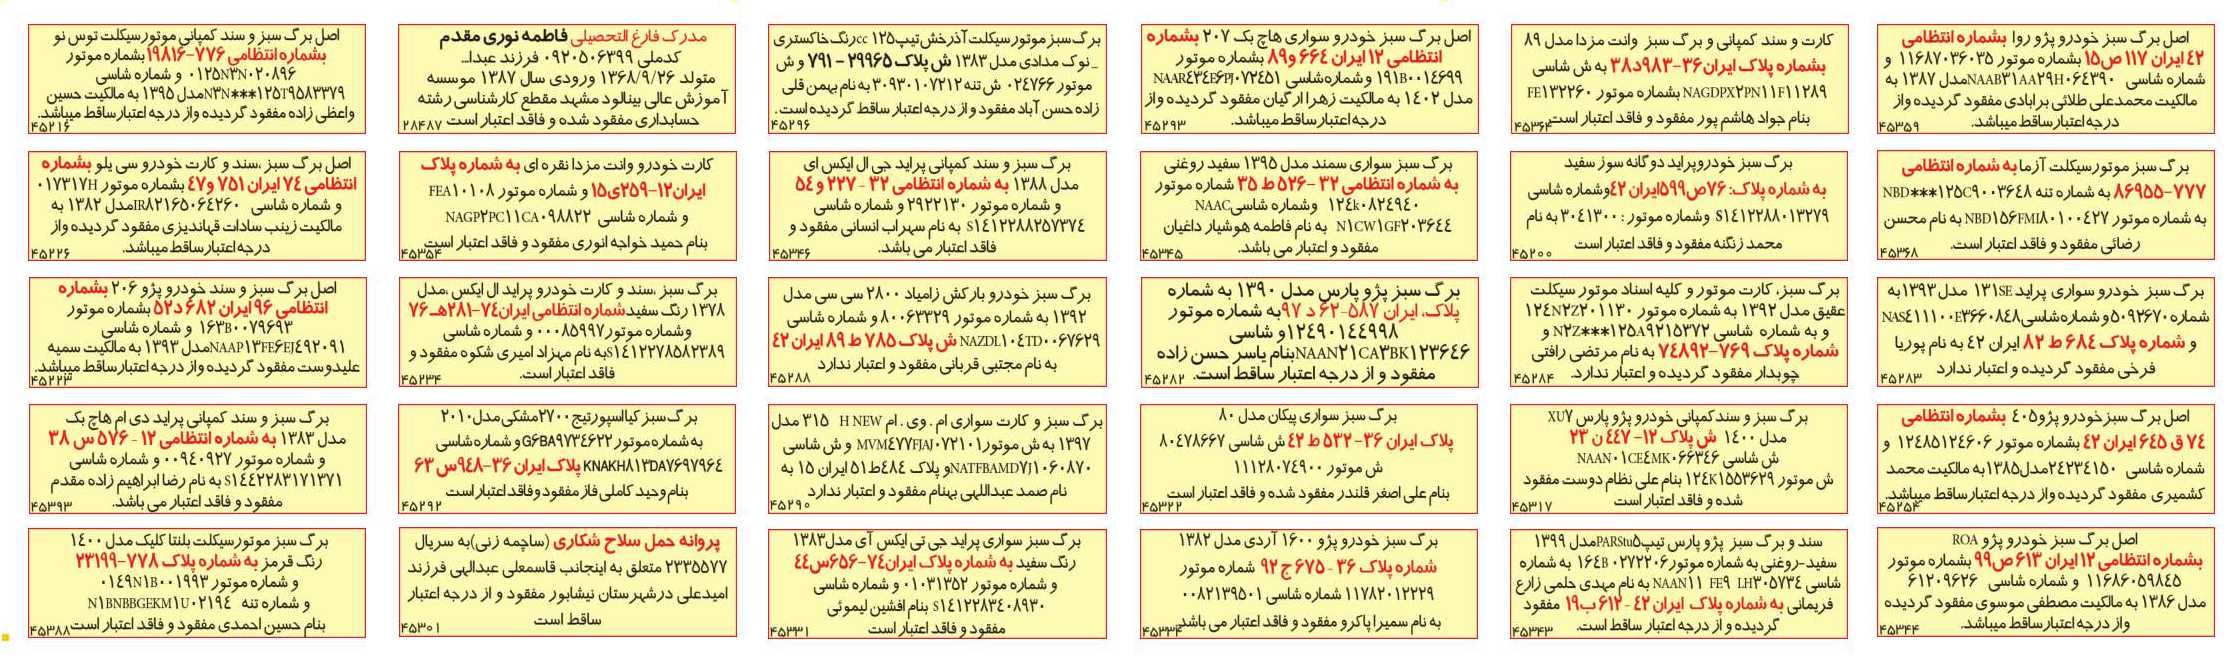 اصل برگ سبز خودرو پژو روا بشماره انتظامی
۴۲ ایران ۱۱۷ ص۱۵ بشماره موتور ۱۱۶۸۷۰۳۶۰۳۵ و
شماره شاسی NAAB۳۱AA۲۹H۰۶۴۳۹۰ مدل ۱۳۸۷ به
مالکیت محمدعلی طلائی برابادی مفقود گردیده واز
درجه اعتبارساقط میباشد.
۴۵۳۵۹
کارت و سند کمپانی و برگ سبز وانت مزدا مدل ۸۹
بشماره پلاک ایران۳۶-۹۸۳د۳۸ به ش شاسی
NAGDPX۲PN۱۱F۱۱۲۸۹ بشماره موتور FE۱۳۲۲۶۰
بنام جواد هاشم پور مفقود و فاقد اعتبار است
۴۵۳۶۴
اصل برگ سبز خودرو سواری هاچ بک ۲۰۷ بشماره
انتظامی ۱۲ ایران ۶۶۴ و۸۹ بشماره موتور
۱۹۱B۰۰۱۴۶۹۹ و شماره شاسی NAAR۴۳۴E۶PJ۰۷۲۴۵۱
مدل ۱۴۰۲ به مالکیت زهرا ارگیان مفقود گردیده واز
درجه اعتبارساقط میباشد.
۴۵۲۹۳
برگ سبز موتور سیکلت آذرخش تیپ cc۱۲۵ رنگ خاکستری
_نوک مدادی مدل ۱۳۸۳ ش پلاک ۲۹۹۶۵ - ۷۹۱ و ش
موتور ۰۲۴۷۶۶ ش تنه ۳۰۹۳۰۱۰۷۲۱۲ به نام بهمن قلی
زاده حسن آباد مفقود و از درجه اعتبار ساقط گردیده است.
۴۵۲۹۶
مدرک فارغ التحصیلی فاطمه نوری مقدم
کدملی ۰۹۲۰۵۰۶۳۹۹ فرزند عبدا...
متولد ۱۳۶۸/۹/۲۶ ورودی سال ۱۳۸۷ موسسه
آموزش عالی بینالود مشهد مقطع کارشناسی رشته
حسابداری مفقود شده و فاقد اعتبار است
۲۸۴۸۷
اصل برگ سبز و سند کمپانی موتورسیکلت توس نو
بشماره انتظامی ۷۷۶-۱۹۸۱۶ بشماره موتور
۰۱۲۵N۳N۰۲۰۸۹۶ و شماره شاسی
N۳N***۱۲۵T۹۵۸۳۳۷۹ مدل ۱۳۹۵ به مالکیت حسین
واعظی زاده مفقود گردیده واز درجه اعتبارساقط میباشد.
۴۵۲۱۶
برگ سبز موتورسیکلت آزما به شماره انتظامی
۷۷۷-۸۶۹۵۵ به شماره تنه NBD***۱۲۵C۹۰۰۳۶۴۸
به شماره موتور NBD۱۵۶FMI۸۰۱۰۰۴۲۷ به نام محسن
رضائی مفقود و فاقد اعتبار است.
۴۵۳۶۸
برگ سبز خودروپراید دوگانه سوز سفید
به شماره پلاک: ۷۶ص۵۹۹ایران ۴۲وشماره شاسی
S۱۴۱۲۲۸۸۰۱۳۲۷۹ وشماره موتور : ۳۰۴۱۳۰۰ به نام
محمد زنگنه مفقود و فاقد اعتبار است
۴۵۲۰۰
برگ سبز سواری سمند مدل ۱۳۹۵ سفید روغنی
به شماره انتظامی ۳۲ -۵۲۶ ط ۳۵ شماره موتور
۱۲۴k۰۸۲۴۹۴۰ وشماره شاسیNAAC
N۱CW۱GF۲۰۳۶۴۴ به نام فاطمه هوشیار داغیان
مفقود و اعتبار می باشد.
۴۵۳۴۵
برگ سبز و سند کمپانی پراید جی ال ایکس ای
مدل ۱۳۸۸ به شماره انتظامی ۳۲ - ۲۲۷ و ۵۴
و شماره موتور ۲۹۲۲۱۳۰ و شماره شاسی
S۱۴۱۲۲۸۸۲۵۷۳۷۴ به نام سهراب انسانی مفقود و
فاقد اعتبار می باشد.
۴۵۳۴۶
کارت خودرو وانت مزدا نقره ای به شماره پلاک
ایران۱۲-۲۵۹ی۱۵ و شماره موتور FEA۱۰۱۰۸
و شماره شاسی NAGP۲PC۱۱CA۰۹۸۸۲۲
بنام حمید خواجه انوری مفقود و فاقد اعتبار است
۴۵۳۵۴
اصل برگ سبز ،سند و کارت خودرو سی یلو بشماره
انتظامی ۷۴ ایران ۷۵۱ و۴۷ بشماره موتور ۰۱۷۳۱۷H
و شماره شاسی IR۸۲۱۶۵۰۶۴۲۶۰ مدل ۱۳۸۲ به
مالکیت زینب سادات قهاندیزی مفقود گردیده واز
درجه اعتبارساقط میباشد.
۴۵۲۲۶
برگ سبز خودرو سواری پراید ۱۳۱SE مدل ۱۳۹۳به
شماره۵۰۹۲۶۷۰و شماره شاسیNAS۴۱۱۱۰۰E۳۶۶۰۸۴۸
و شماره پلاک ۶۸۴ ط ۸۲ ایران ۴۲ به نام پوریا
فرخی مفقود گردیده و اعتبار ندارد
۴۵۲۸۳
برگ سبز، کارت موتور و کلیه اسناد موتور سیکلت
عقیق مدل ۱۳۹۲ به شماره موتور ۱۲۴N۲Z۲۰۱۱۳۰
و به شماره شاسی N۲Z***۱۲۵A۹۲۱۵۳۷۲ و
شماره پلاک ۷۶۹-۷۴۸۹۲ به نام مرتضی رافتی
چوبدار مفقود گردیده و اعتبار ندارد.
۴۵۲۸۴
برگ سبز پژو پارس مدل ۱۳۹۰ به شماره
پلاک، ایران ۵۸۷-۶۲ د ۹۷به شماره موتور
۱۲۴۹۰۱۴۴۹۹۸و شاسی
NAAN۲۱CA۳BK۱۲۳۶۴۶بنام یاسر حسن زاده
مفقود و از درجه اعتبار ساقط است.
۴۵۲۸۲
برگ سبز خودرو بارکش زامیاد ۲۸۰۰ سی سی مدل
۱۳۹۲ به شماره موتور ۸۰۰۶۳۳۲۹ و شماره شاسی
NAZDL۱۰۴TD۰۰۶۷۶۲۹ ش پلاک ۷۸۵ ط ۸۹ ایران ۴۲
به نام مجتبی قربانی مفقود و اعتبار ندارد
۴۵۲۸۸
برگ سبز ،سند و کارت خودرو پراید ال ایکس،مدل
۱۳۷۸ رنگ سفیدشماره انتظامی ایران۷۴-۲۸۱هـ ۷۶
وشماره موتور۰۰۰۸۵۹۹۷ و شماره شاسی
S۱۴۱۲۲۷۸۵۸۲۳۸۹به نام مهرزاد امیری شکوه مفقود و
فاقد اعتبار است.
۴۵۲۳۴
اصل برگ سبز و سند خودرو پژو ۲۰۶ بشماره
انتظامی ۹۶ ایران ۶۸۲ د۵۲ بشماره موتور
۱۶۳B۰۰۷۹۶۹۳ و شماره شاسی
NAAP۱۳FE۶EJ۴۹۲۰۹۱ مدل ۱۳۹۳ به مالکیت سمیه
علیدوست مفقود گردیده واز درجه اعتبارساقط میباشد.
۴۵۲۲۳
اصل برگ سبزخودرو پژو۴۰۵ بشماره انتظامی
۷۴ ق ۶۴۵ ایران ۴۲ بشماره موتور ۱۲۴۸۵۱۲۴۶۰۶ و
شماره شاسی ۲۴۲۳۴۱۵۰مدل۱۳۸۵به مالکیت محمد
کشمیری مفقود گردیده واز درجه اعتبارساقط میباشد.
۴۵۲۵۴
برگ سبز و سندکمپانی خودرو پژو پارس XU۷
مدل ۱۴۰۰ ش پلاک ۱۲- ۴۴۷ ن ۲۳
ش شاسی NAAN۰۱CE۴MK۰۶۶۳۴۶
ش موتور ۱۲۴K۱۵۵۳۶۲۹ بنام علی نظام دوست مفقود
شده و فاقد اعتبار است
۴۵۳۱۷
برگ سبز سواری پیکان مدل ۸۰
پلاک ایران ۳۶-۵۳۲ ط ۴۲ ش شاسی ۸۰۴۷۸۶۶۷
ش موتور ۱۱۱۲۸۰۷۴۹۰۰
بنام علی اصغر قلندر مفقود شده و فاقد اعتبار است
۴۵۳۲۲
برگ سبز و کارت سواری ام . وی . ام H NEW ۳۱۵ مدل
۱۳۹۷ به ش موتورMVM۴۷۷FJAJ۰۷۲۱۰۱ و ش شاسی
NATFBAMD۷J۱۰۶۰۸۷۰و پلاک ۴۸۴ط۵۱ ایران ۱۵ به
نام صمد عبداللهی بهنام مفقود و اعتبار ندارد
۴۵۲۹۰
برگ سبز کیااسپورتیج۲۷۰۰مشکی مدل۲۰۱۰
به شماره موتورG۶BA۹۷۳۴۶۲۲ و شماره شاسی
KNAKH۸۱۳DA۷۶۹۷۹۶۴ پلاک ایران ۳۶-۹۴۸س ۶۳
بنام وحید کاملی فاز مفقود وفاقد اعتبار است
۴۵۲۹۲
برگ سبز و سند کمپانی پراید دی ام هاچ بک
مدل ۱۳۸۳ به شماره انتظامی ۱۲ - ۵۷۶ س ۳۸
و شماره موتور ۰۰۹۴۰۹۲۷ و شماره شاسی
S۱۴۴۲۲۸۳۱۷۱۳۷۱ به نام رضا ابراهیم زاده مقدم
مفقود و فاقد اعتبار می باشد.
۴۵۳۹۳
اصل برگ سبز خودرو پژو ROA
بشماره انتظامی ۱۲ایران ۶۱۳ ص۹۹ بشماره موتور
۱۱۶۸۶۰۵۹۸۴۵ و شماره شاسی ۶۱۲۰۹۶۲۶
مدل ۱۳۸۶ به مالکیت مصطفی موسوی مفقود گردیده
واز درجه اعتبارساقط میباشد.
۴۵۳۴۴
سند و برگ سبز پژو پارس تیپPARStu۵مدل ۱۳۹۹
سفید-روغنی به شماره موتور۱۶۴B۰۲۷۲۲۰۶ به شماره
شاسی NAAN۱۱ FE۹ LH۳۰۵۷۳۴ به نام مهدی حلمی زارع
فریمانی به شماره پلاک ایران ۴۲ - ۶۱۲ ب۱۹ مفقود
گردیده و از درجه اعتبار ساقط است.
۴۵۳۴۳
برگ سبز خودرو پژو ۱۶۰۰ آردی مدل ۱۳۸۲
شماره پلاک ۳۶ - ۶۷۵ ج ۹۲ شماره موتور
۱۱۷۸۲۰۱۲۲۲۹ شماره شاسی ۰۰۸۲۱۳۹۵۰۱
به نام سمیرا پاکرو مفقود و فاقد اعتبار می باشد
۴۵۳۳۴
برگ سبز سواری پراید جی تی ایکس آی مدل۱۳۸۳
رنگ سفید به شماره پلاک ایران۷۴-۶۵۶س۴۴
و شماره موتور ۰۱۰۳۱۳۵۲ و شماره شاسی
S۱۴۱۲۲۸۳۴۰۸۹۳۰ بنام افشین لیموئی
مفقود و فاقد اعتبار است
۴۵۳۳۱
پروانه حمل سلاح شکاری (ساچمه زنی)به سریال
۲۳۳۵۵۷۷ متعلق به اینجانب قاسمعلی عبدالهی فرزند
امیدعلی درشهرستان نیشابور مفقود و از درجه اعتبار
ساقط است
۴۵۳۰۱
برگ سبز موتورسیکلت بلنتا کلیک مدل ۱۴۰۰
رنگ قرمز به شماره پلاک ۷۷۸-۲۳۱۹۹
و شماره موتور ۰۱۴۹N۱B۰۰۱۹۹۳
و شماره تنه N۱BNBBGEKM۱U۰۲۱۹۴
بنام حسین احمدی مفقود و فاقد اعتبار است
۴۵۳۸۸